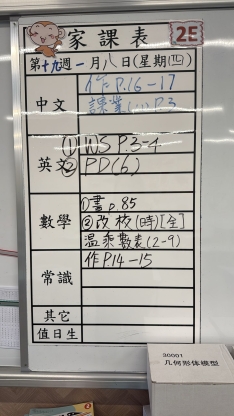 家課表 2E
第十九週 一月八日(星期四)
中文 作P.16-17
課業(八)P.3
英文 ① WS P.3-4
② PD(6)
數學 ①書p.85
②改校(時)[全]
溫乘數表(2-9)
常識 作P.14-15
其它
值日生
30001
几何形体模型